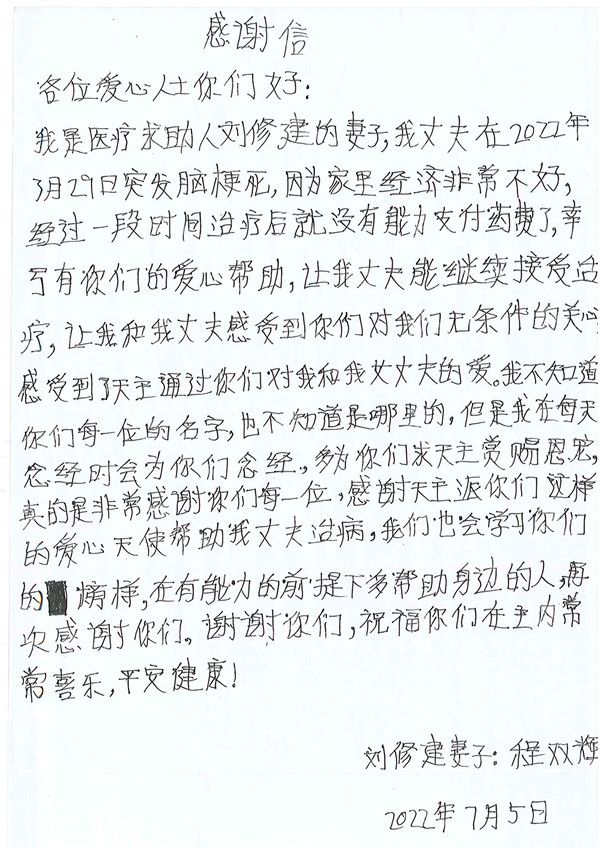 感谢信
各位爱心人士你们好:
我是医疗求助人刘修建的妻子,我丈夫在2022年
3月29日突发脑梗死,因为家里经济非常不好,
经过一段时间治疗后就没有能力支付药费了,幸
亏有你们的爱心帮助,让我丈夫能继续接受治
疗,让我和我丈夫感受到你们对我们无条件的关心,
感受到了天主通过你们对我和我丈夫的爱。我不知道
你们每一位的名字,也不知道是哪里的,但是我在每天
念经时会为你们念经,多为你们求天主赏赐恩宠,
真的是非常感谢你们每一位,感谢天主派你们这样
的爱心天使帮助我丈夫治病,我们也会学习你们
的榜样,在有能力的前提下多帮助身边的人,再
次感谢你们。谢谢你们,祝福你们在主内常
常喜乐,平安健康!
刘修建妻子:程双辉
2022年7月5日